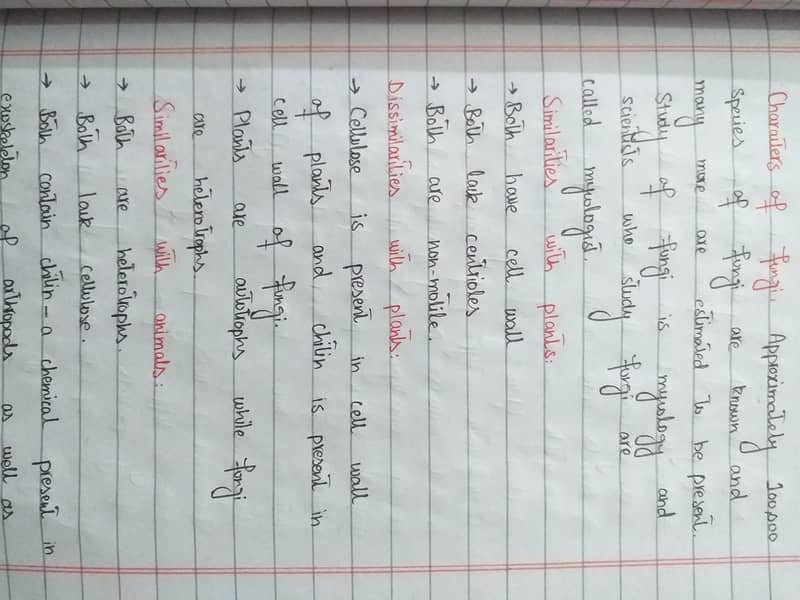 Charaters of fungi. Approximately 100,000
species of fungi are known and
many more are estimated to be present.
Study of fungi is mycology and
scientists who study fungi are
called mycologist.
Similarities with plants:
→ Both have cell wall
→ Both lack centrioles
→ Both are non-motile.
Dissimilarities with plants:
→ Cellulose is present in cell wall
of plants and chitin is present in
cell wall of fungi.
→ Plants are autotrophs while fungi
are heterotrophs.
Similarities with animals:
→ Both are heterotrophs.
→ Both lack cellulose.
→ Both contain chitin - a chemical present in
exoskeleton of arthropods as well as